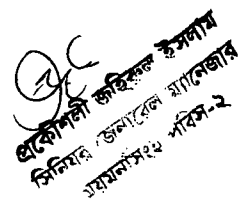 প্রকৌশলী জহিরুল ইসলাম
সিনিয়র জেনারেল ম্যানেজার
ময়মনসিংহ পবিস-২